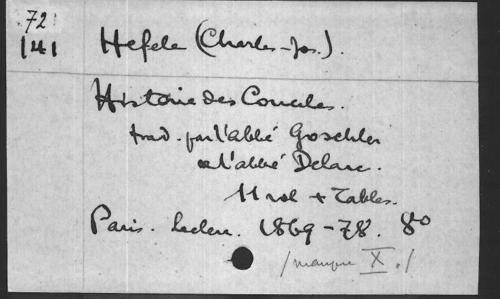 72
141
Hefele (Charles-Jos.).
Histoire des Conciles.
trad. par l'abbé Goschler
et l'abbé Delarc.
11 vol + Tables.
Paris. Leclerc. 1869-78. 8º
/manque X./